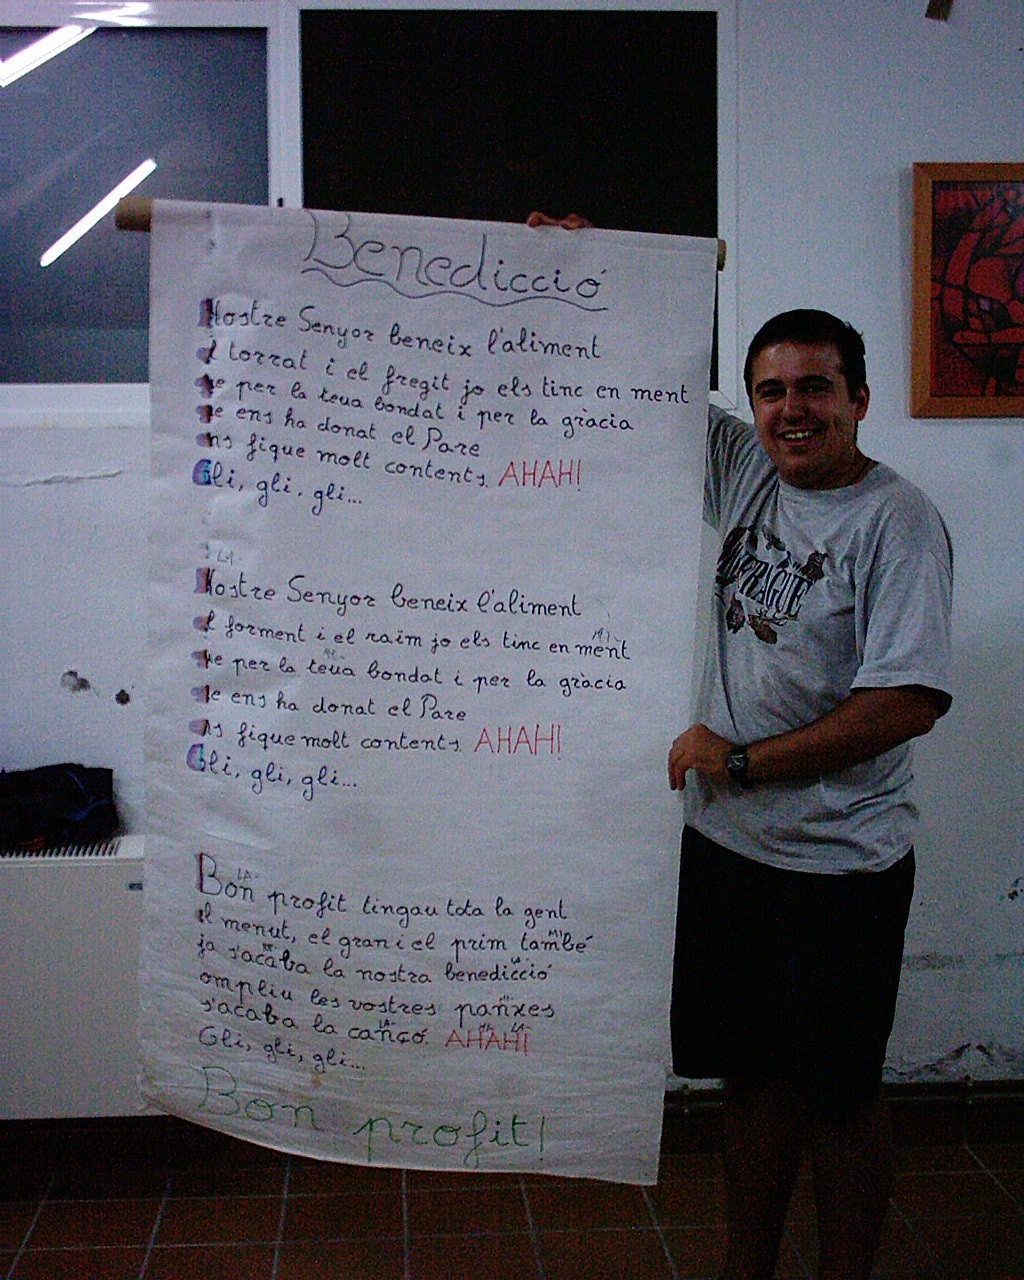 Benedicció
Nostre Senyor beneix l'aliment
l torrat i el fregit jo els tinc en ment
ue per la teua bondat i per la gràcia
ue ens ha donat el Pare
ns fique molt contents. AHAH!
Gli, gli, gli...
LA-
Nostre Senyor beneix l'aliment
l forment i el raïm jo els tinc en ment
ue per la teua bondat i per la gràcia
ue ens ha donat el Pare
ns fique molt contents. AHAH!
Gli, gli, gli...
LA-
Bon profit tingau tota la gent
el menut, el gran i el prim també
ja s'acaba la nostra benedicció
ompliu les vostres panxes
s'acaba la cançó. AHAH!
Gli, gli, gli...
Bon profit!